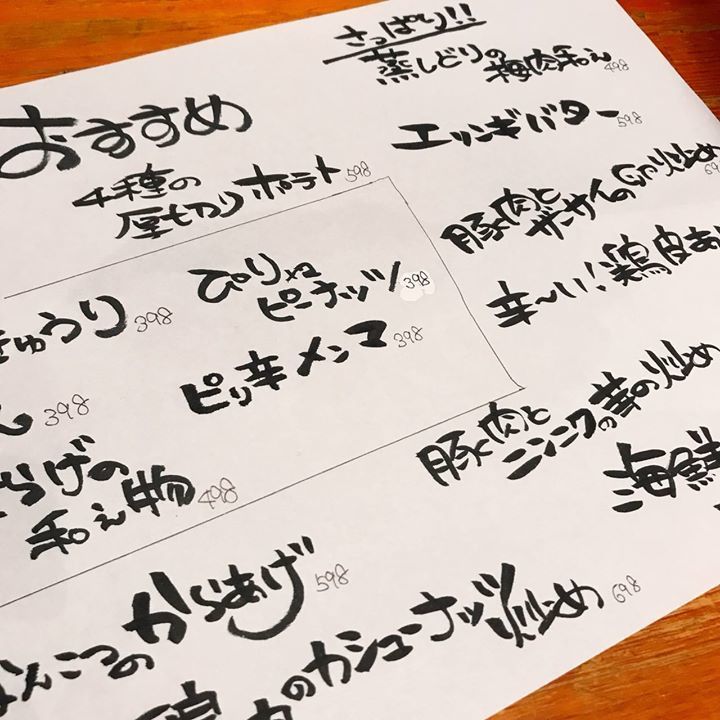 さっぱり!!
蒸しどりの
梅肉和え 498
おすすめ
4種の
厚切りポテト 598
エリンギバター 598
豚肉と
ザーサイの炒め
ぴり辛
ピーナッツ 398
辛〜い!鶏皮
きゅうり 398
ピリ辛メンマ 398
398
豚肉と
ニンニクの芽の炒め
らげの
和え物 498
海鮮
なんこつのからあげ 598
のカシューナッツ炒め 698